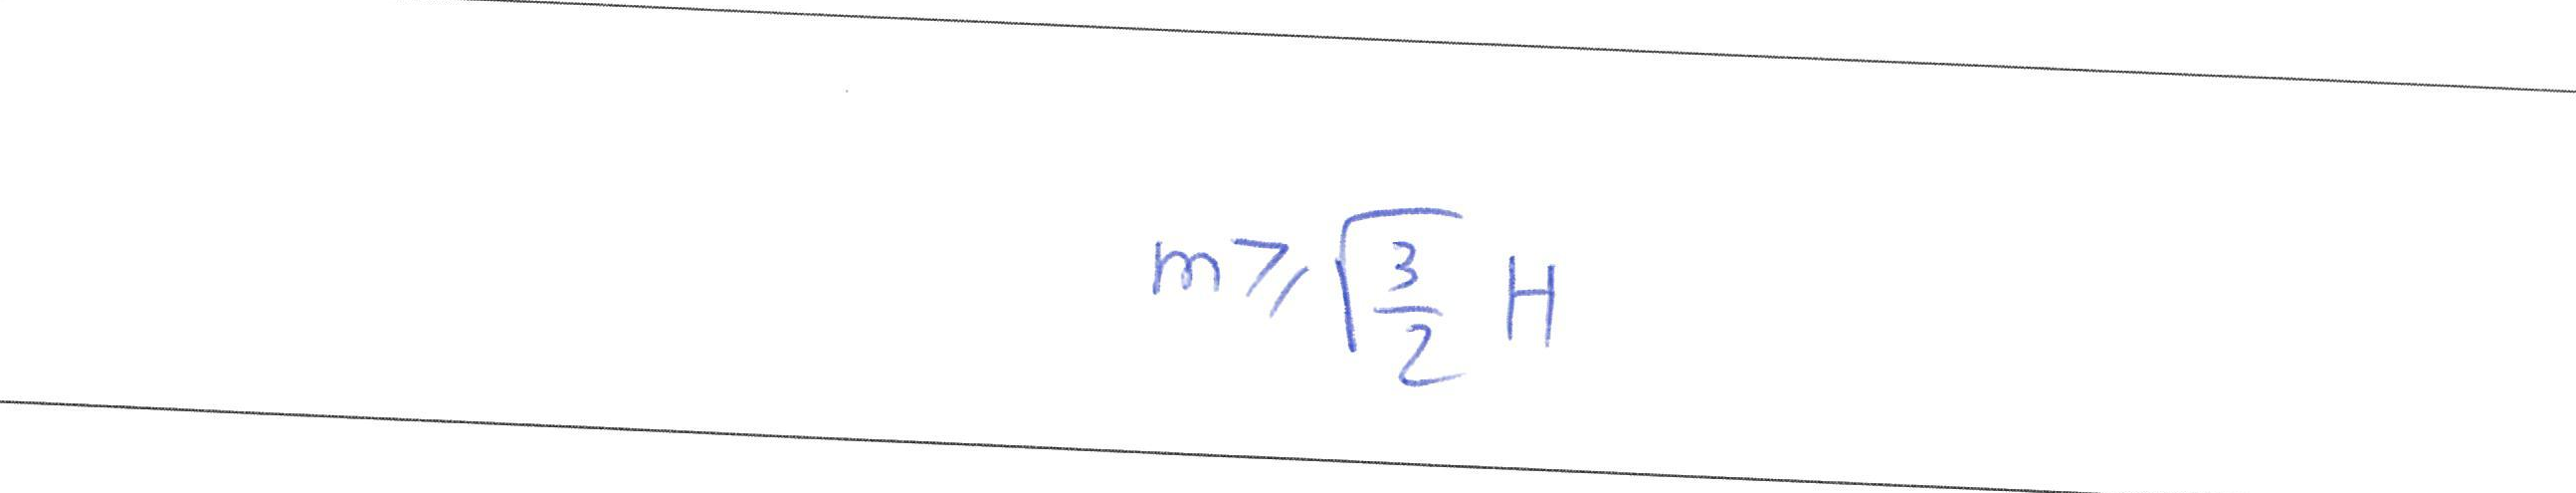 m ⩾ √(3/2) H